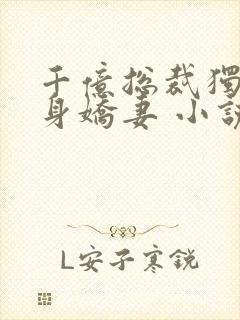 千億總裁獨
身嬌妻 小說
L安子寒銳